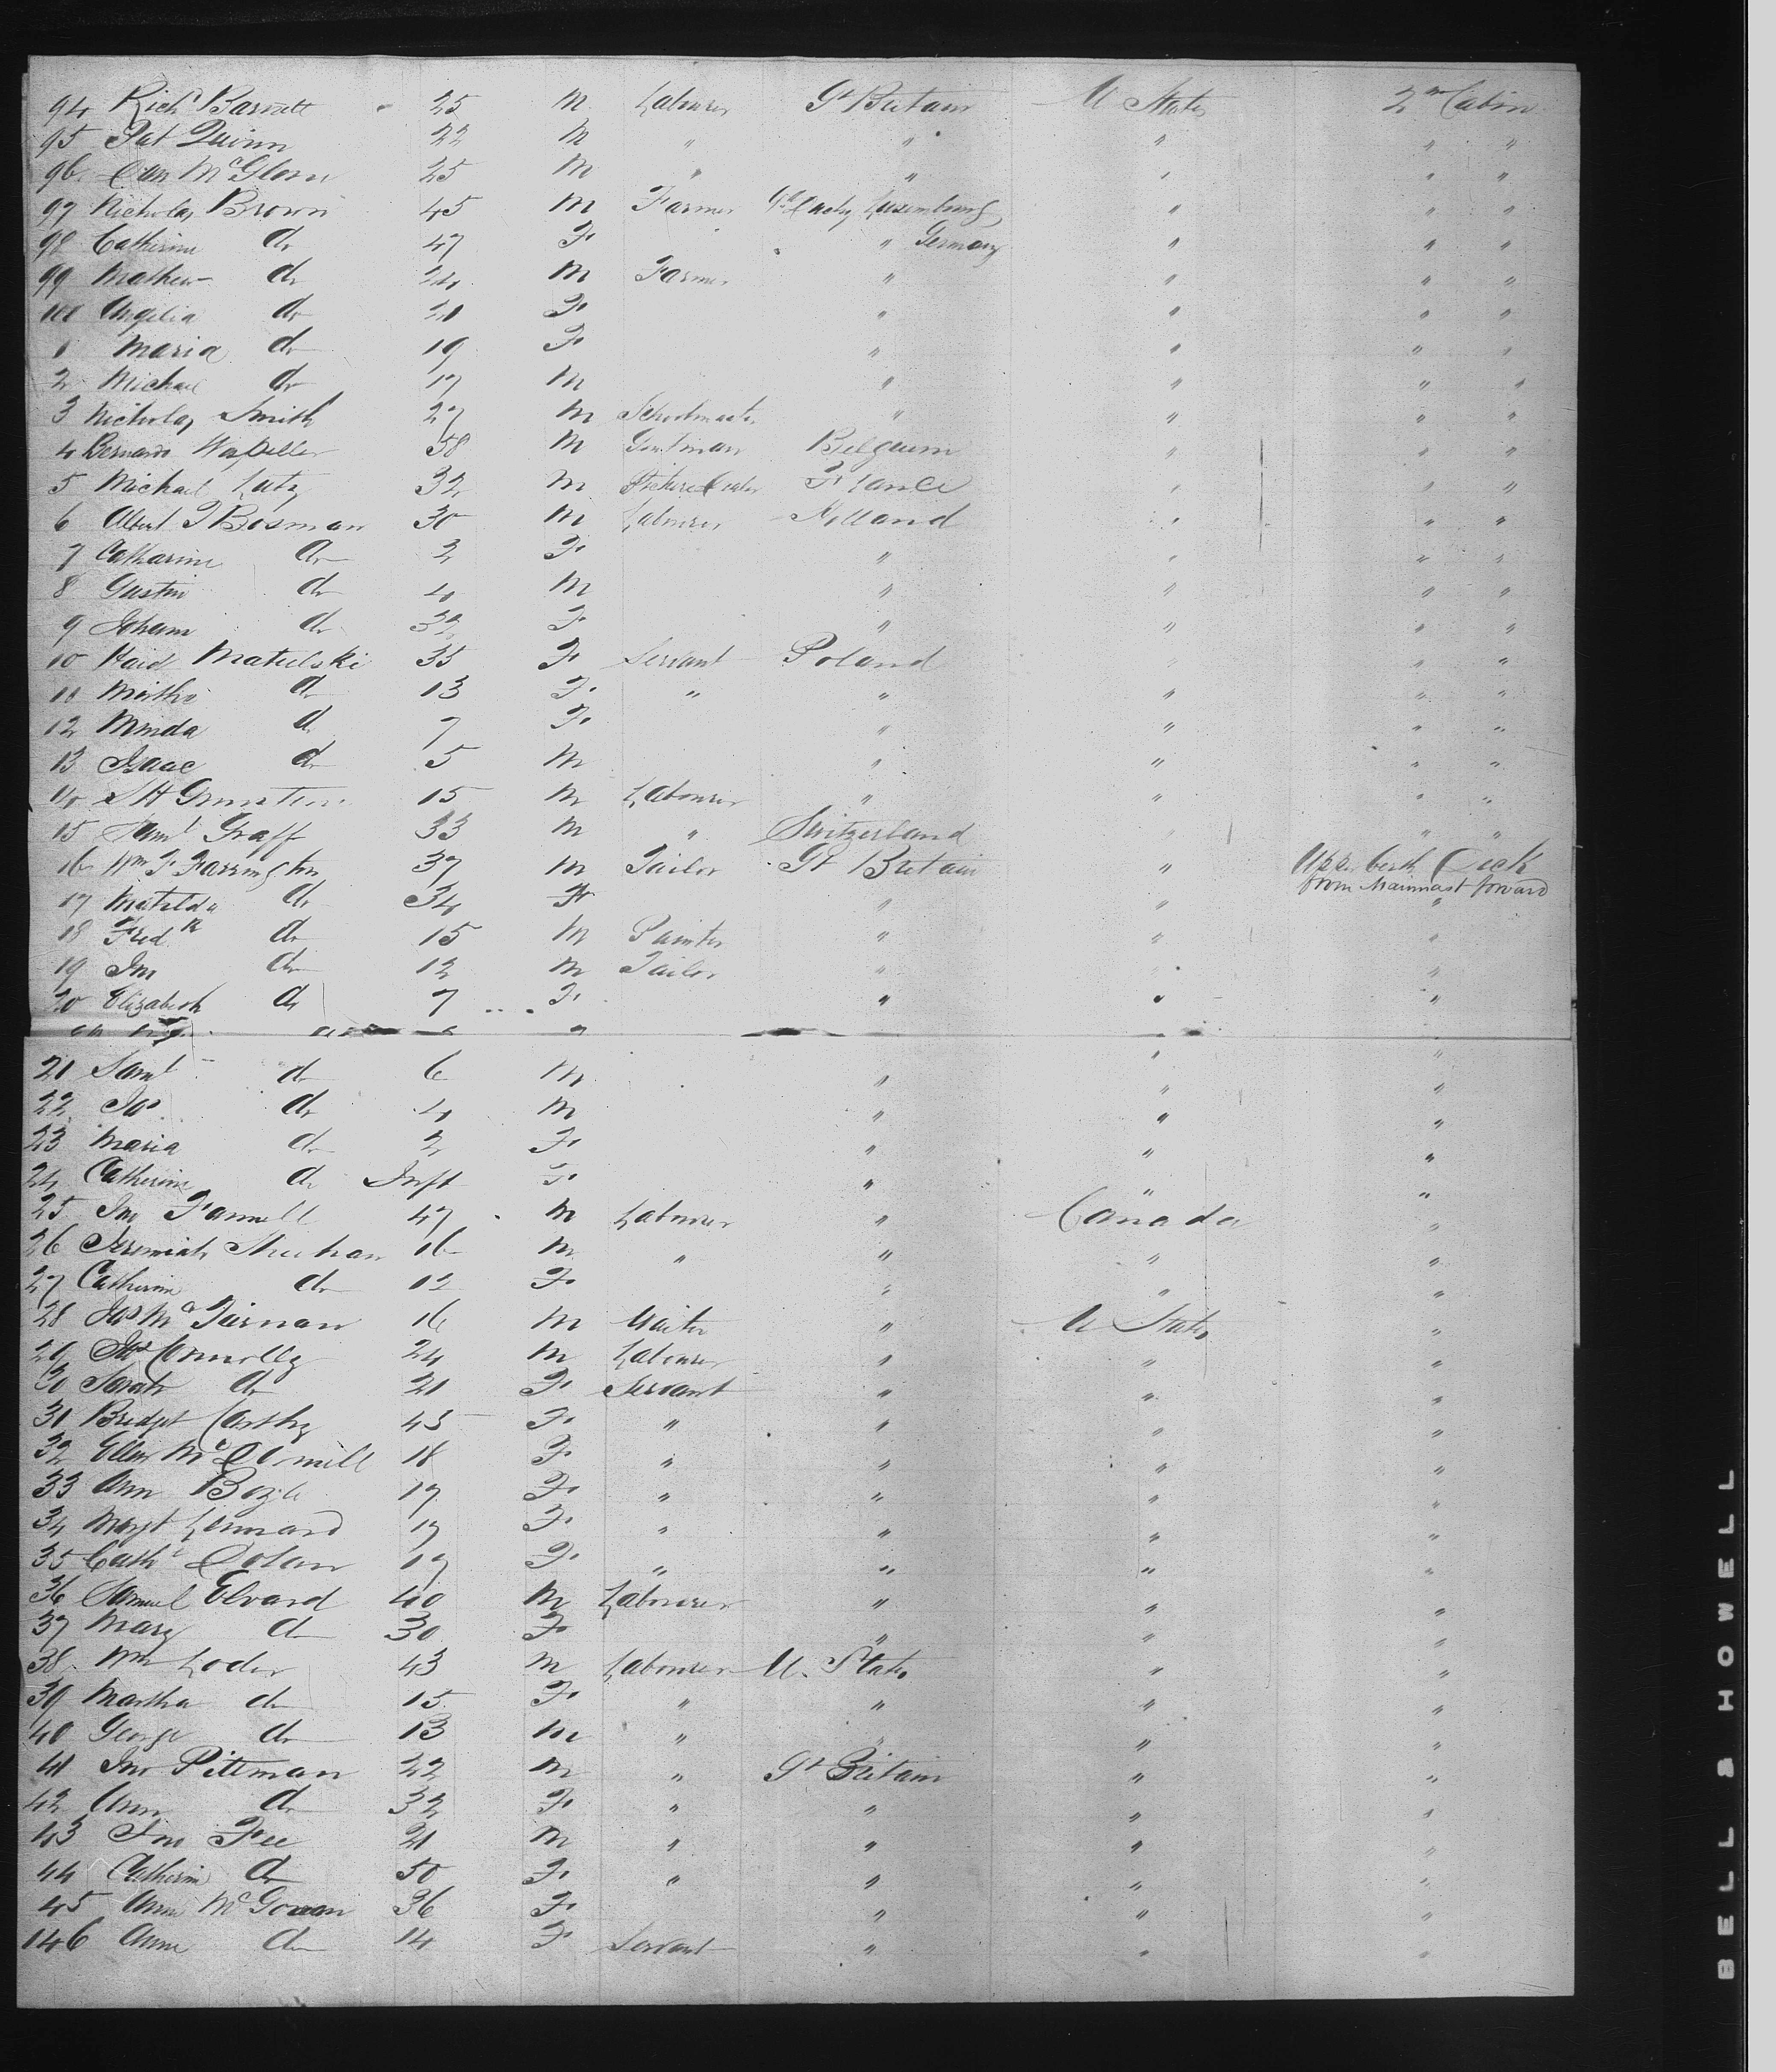 94 Richd Barnett 25 M Labourer Gt Britain U States 2nd Cabin
95 Pat Quinn 22 M " " " " "
96 Dan McGlone 25 M " " " " "
97 Nicholas Brown 45 M Farmer Gd Duchy Luxemburg " " "
98 Catherine do 47 F " Germany " " "
99 Mathew do 24 M Farmer " " " "
100 Angelia do 21 F " " " "
1 Maria do 19 F " " " "
2 Michael do 17 M " " " "
3 Nicholas Smith 27 M Schoolmaster " " " "
4 Bernard 58 M Gentman Belgeum " " "
5 Michael Lutz 32 M Picture Dealer France " " "
6 Albert T Bosman 30 M Labourer Holland " " "
7 Catharine do 2 F " " " "
8 Gustin do 4 M " " " "
9 Johann do 32 F " " " "
10 Matulski 35 F Servant Poland " "
11 Martha do 13 F " " " " "
12 Minda do 7 F " " " "
13 Isaac do 5 M " " " "
14 15 M Labourer " " " "
15 Saml Graff 33 M " Switzerland " " "
16 Wm F Farrington 37 M Tailor Gt Britain " Upper berth Deck
from Mainmast forward
17 Matilda do 34 F " " "
18 Fredk do 15 M Painter " " "
19 Jno do 12 M Tailor " " "
20 Elizabeth do 7 F " " "
21 Saml do 6 M " " "
22 Jos do 4 M " " "
23 Maria do 2 F " " "
24 Catherine do Inft F " " "
25 Jno Farrell 47 M Labourer " Canada "
26 Jeremiah Sheehan 16 M " " " "
27 Catherine do 12 F " " "
28 Jas McTiernan 16 M Waiter " U States "
29 Connolly 24 M Labourer " " "
30 Sarah do 21 F Servant " " "
31 Bridget Carthy 45 F " " " "
32 Ellen McDonnell 18 F " " " "
33 Ann Boyle 17 F " " " "
34 Margt Lennard 17 F " " " "
35 Cathe Dolan 17 F " " " "
36 Samuel Elvard 40 M Labourer " " "
37 Mary do 30 F " " "
38 Wm Loder 43 M Labourer U. States " "
39 Martha do 15 F " " " "
40 George do 13 M " " " "
41 Jno Pittman 22 M " Gt Britain " "
42 Ann do 32 F " " " "
43 Jno Fee 21 M " " " "
44 Catherin do 50 F " " " "
45 Ann McGowan 36 F " " "
146 Anne do 14 F Servant " " "
BELL & HOWELL